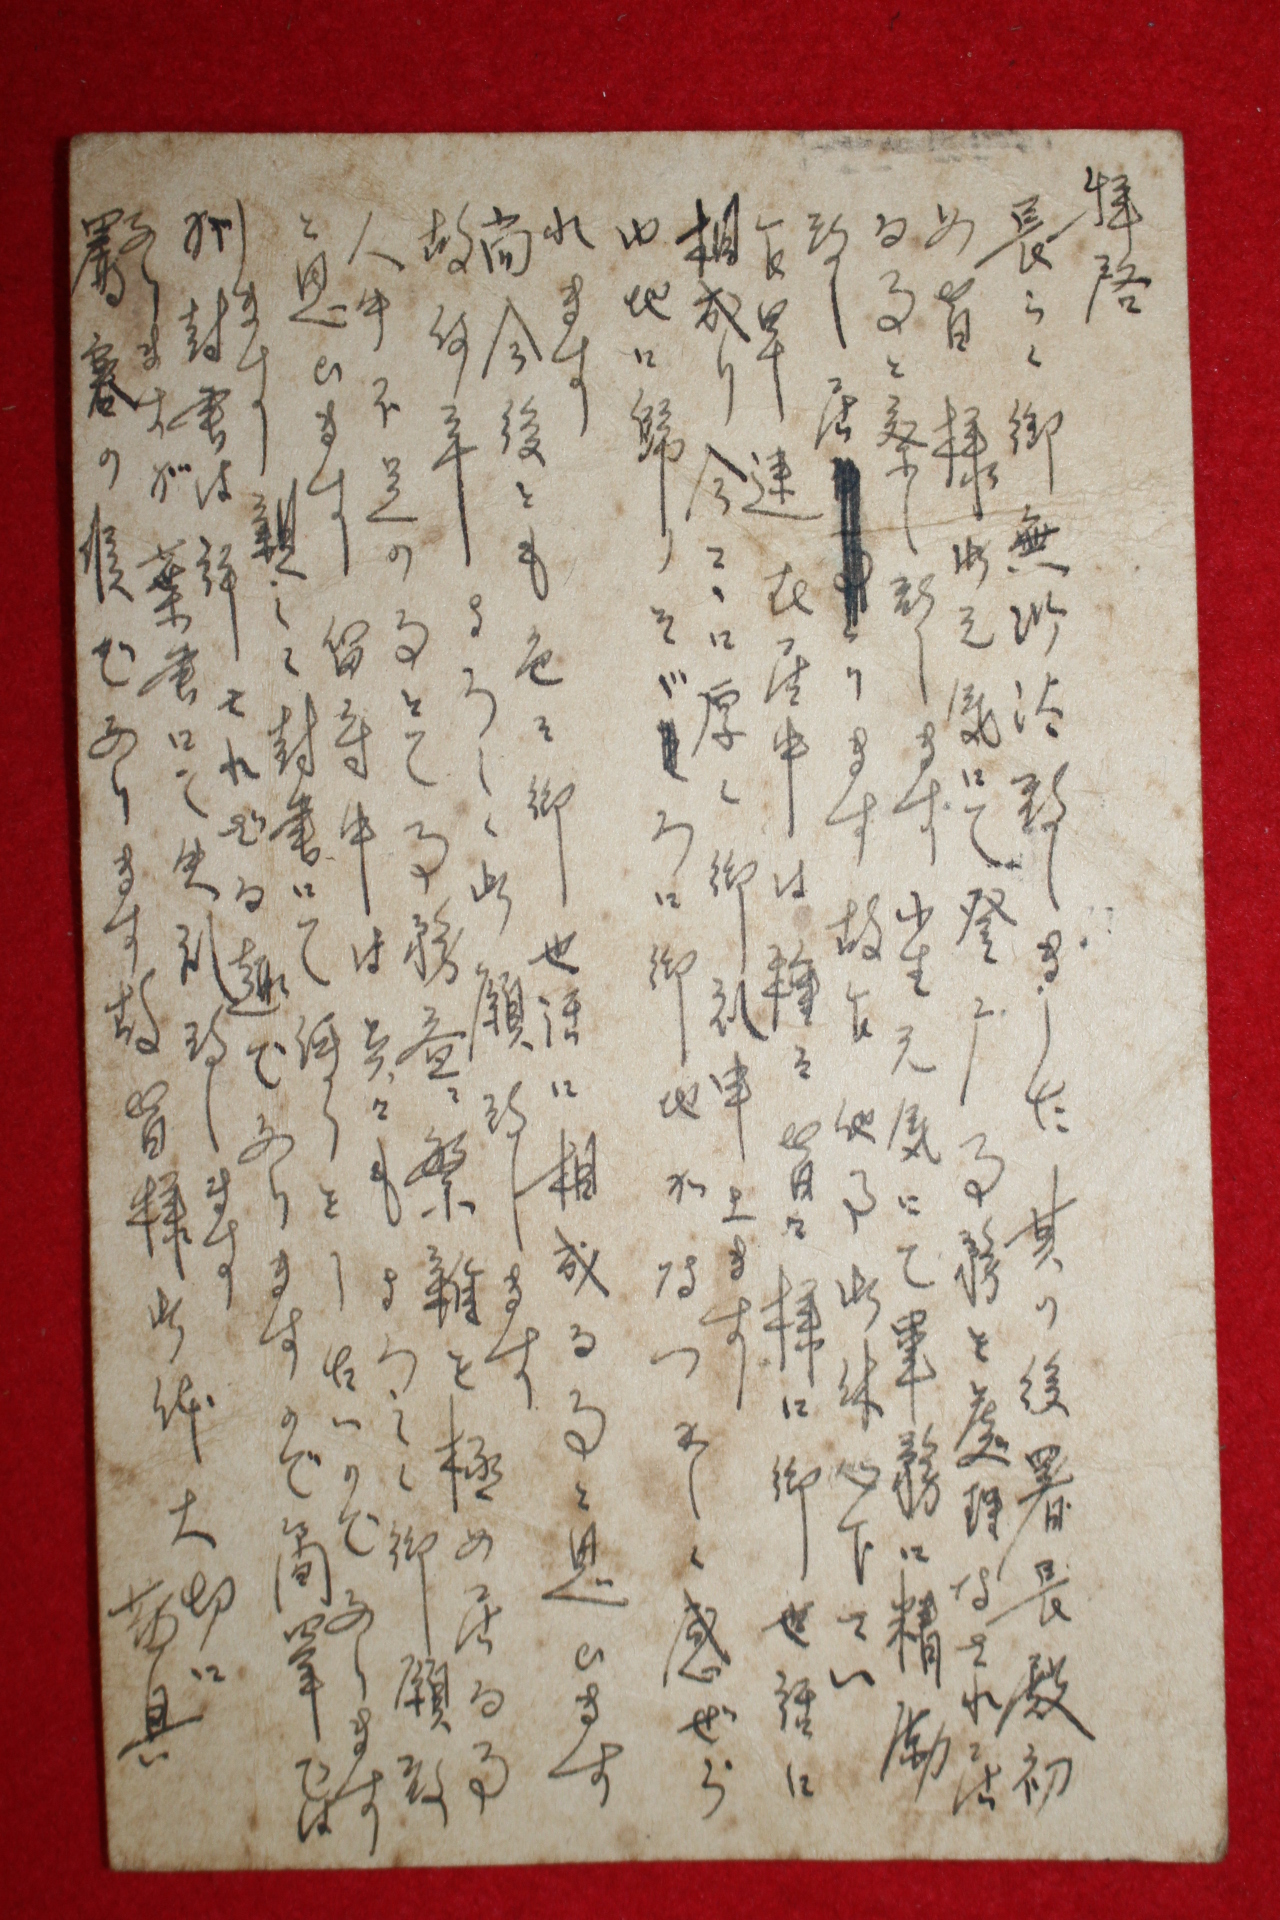 拝啓
長らく御無沙汰致しました 其の後署長殿初
め皆様此元気にて登庁 事務を處理なされ居
る事と察し致します 小生元気にて軍務に精励
致し居ります故 他事 休心下さい
早速 在居中は種々皆々様に御世話に
相成り今ここに厚く御礼申上ます
内地に帰りそぞろに御地がなつかしく感ぜら
れます
尚今後とも色々御世話に相成る事と思ひます
故何卒よろしく 願致します
人手不足の事とて事務益々繁雑を極め居る事
と思ひます 留守中は共々もよろしく御願致
します 親しく封書にて 古いのであります
が封書は許されざる趣であります ので簡単では
ありますが葉書にて失礼致します
嚴寒の候であります故皆様 体大切に
敬具